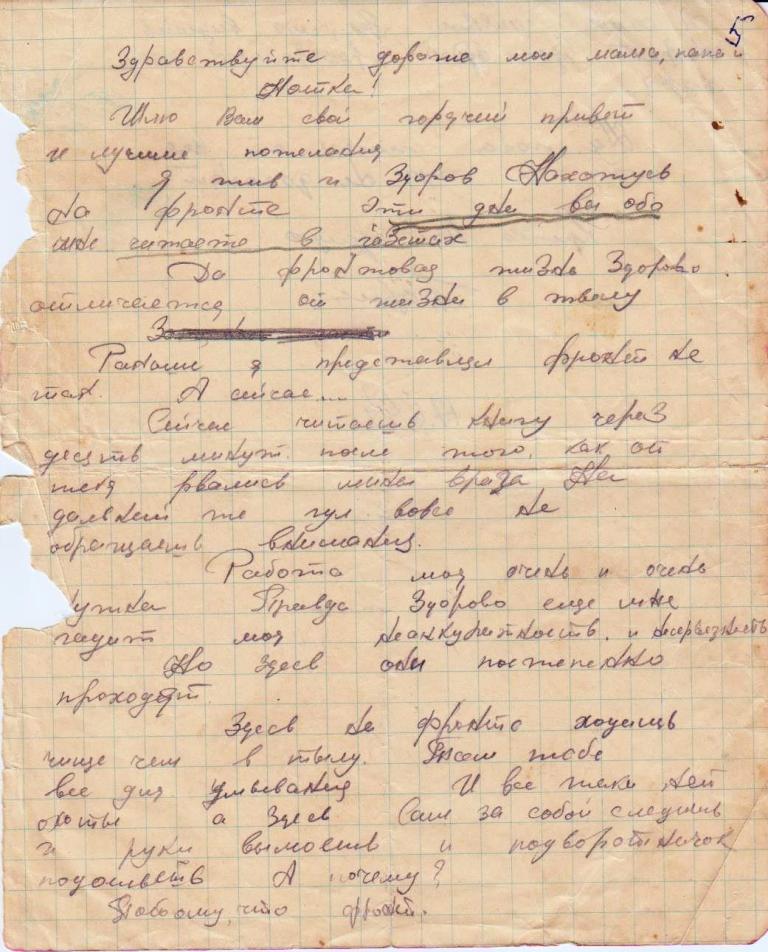 Здравствуйте дорогие мои мама, папа и
Шлю Вам свой горячий привет
и лучшие пожелания
Я жив и здоров Нахожусь
на фронте Эти дни вы обо
мне читаете в газетах
Да фронтовая жизнь здорово
отличается от жизни в тылу
Раньше я представлял фронт не
так. А сейчас...
Сейчас читаешь книгу через
десять минут после того, как от
тебя рвались мины врага На
дальний же гул вовсе не
обращаешь внимания.
Работа моя очень и очень
нужна Правда здорово еще мне
гадит моя неаккуратность. и несерьезность
Но здесь они постепенно
проходят.
Здесь на фронте ходишь
чище чем в тылу. Там тебе
все для умывания И все таки нет
охоты а здесь Сам за собой следишь
и руки вымоешь и подворотничок
подошьешь А почему?
Потому, что фронт.